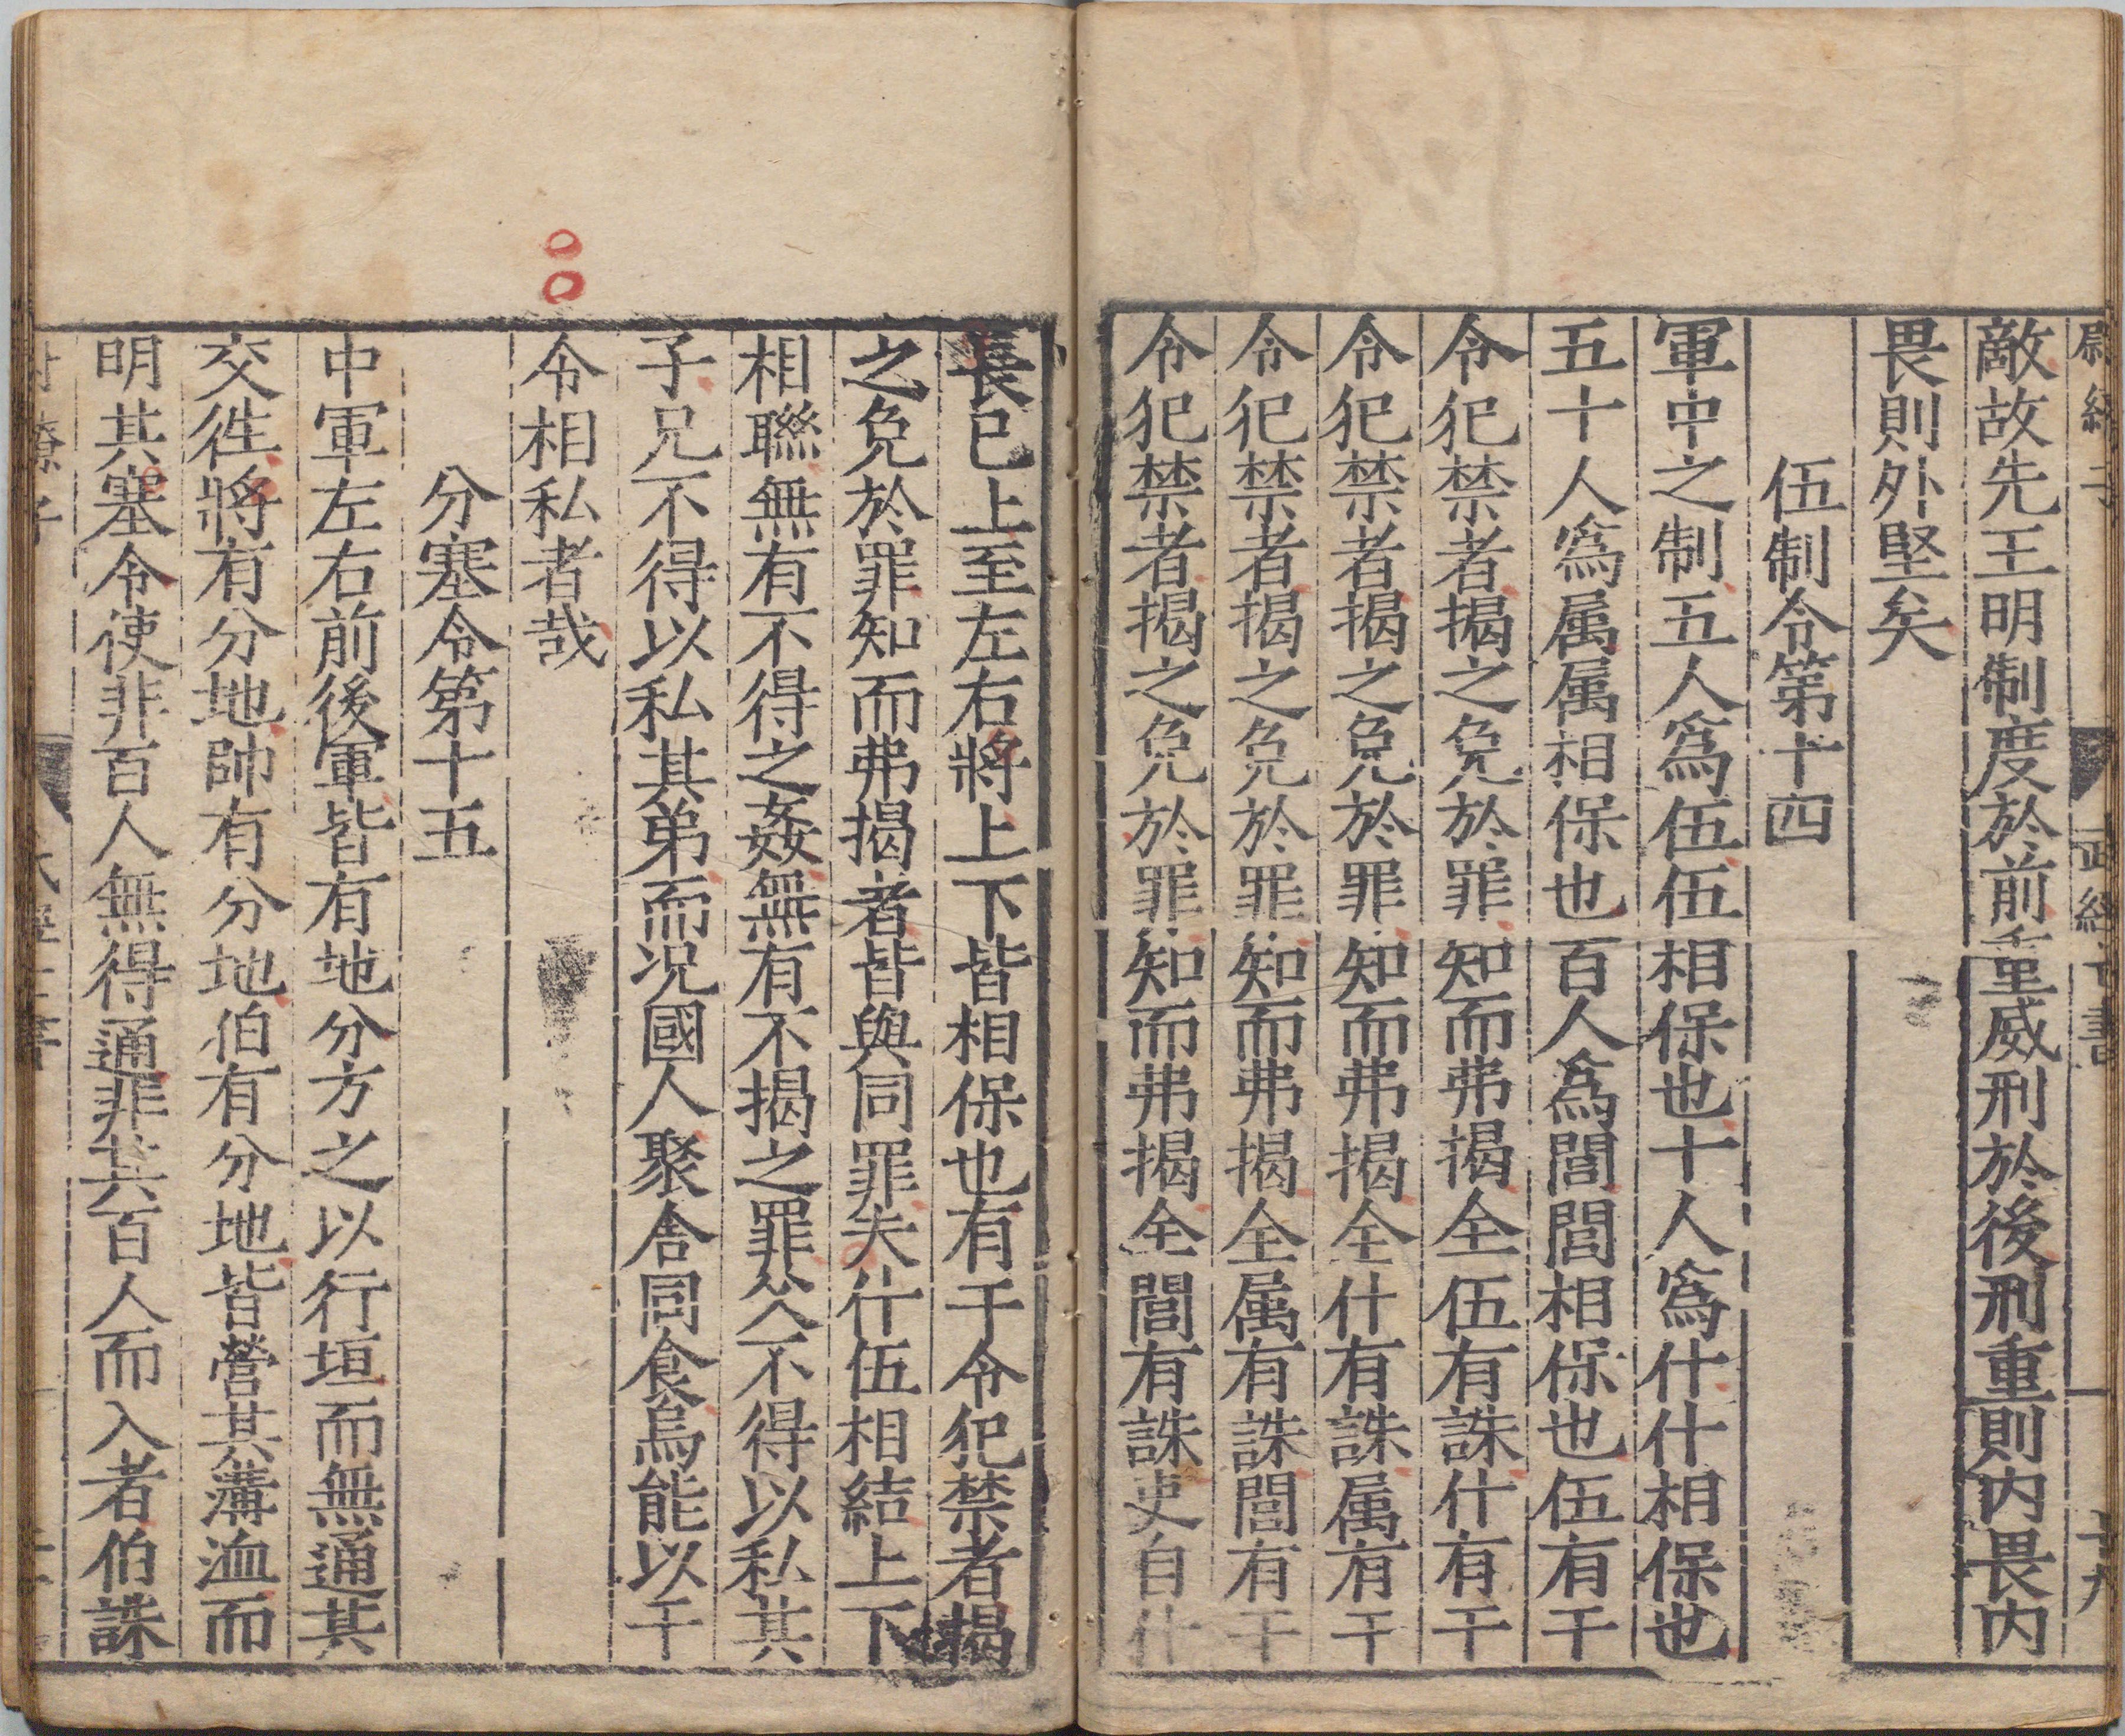 敵故先王明制度於前重威刑於後刑重則内畏内
畏則外堅矣
伍制令第十四
軍中之制五人爲伍伍相保也十人爲什什相保也
五十人爲属属相保也百人爲閭閭相保也伍有干
令犯禁者揭之免於罪知而弗揭全伍有誅什有干
令犯禁者揭之免於罪知而弗揭全什有誅属有干
令犯禁者揭之免於罪知而弗揭全属有誅閭有干
令犯禁者揭之免於罪知而弗揭全閭有誅吏自什
長已上至左右將上下皆相保也有干令犯禁者揭
之免於罪知而弗揭者皆與同罪夫什伍相結上下
相聯無有不得之姦無有不揭之罪父不得以私其
子兄不得以私其弟而况國人聚舎同食烏能以干
令相私者哉
分塞令第十五
中軍左右前後軍皆有地分方之以行垣而無通其
交徃將有分地帥有分地伯有分地皆營其溝洫而
明其塞令使非百人無得通非其百人而入者伯誅